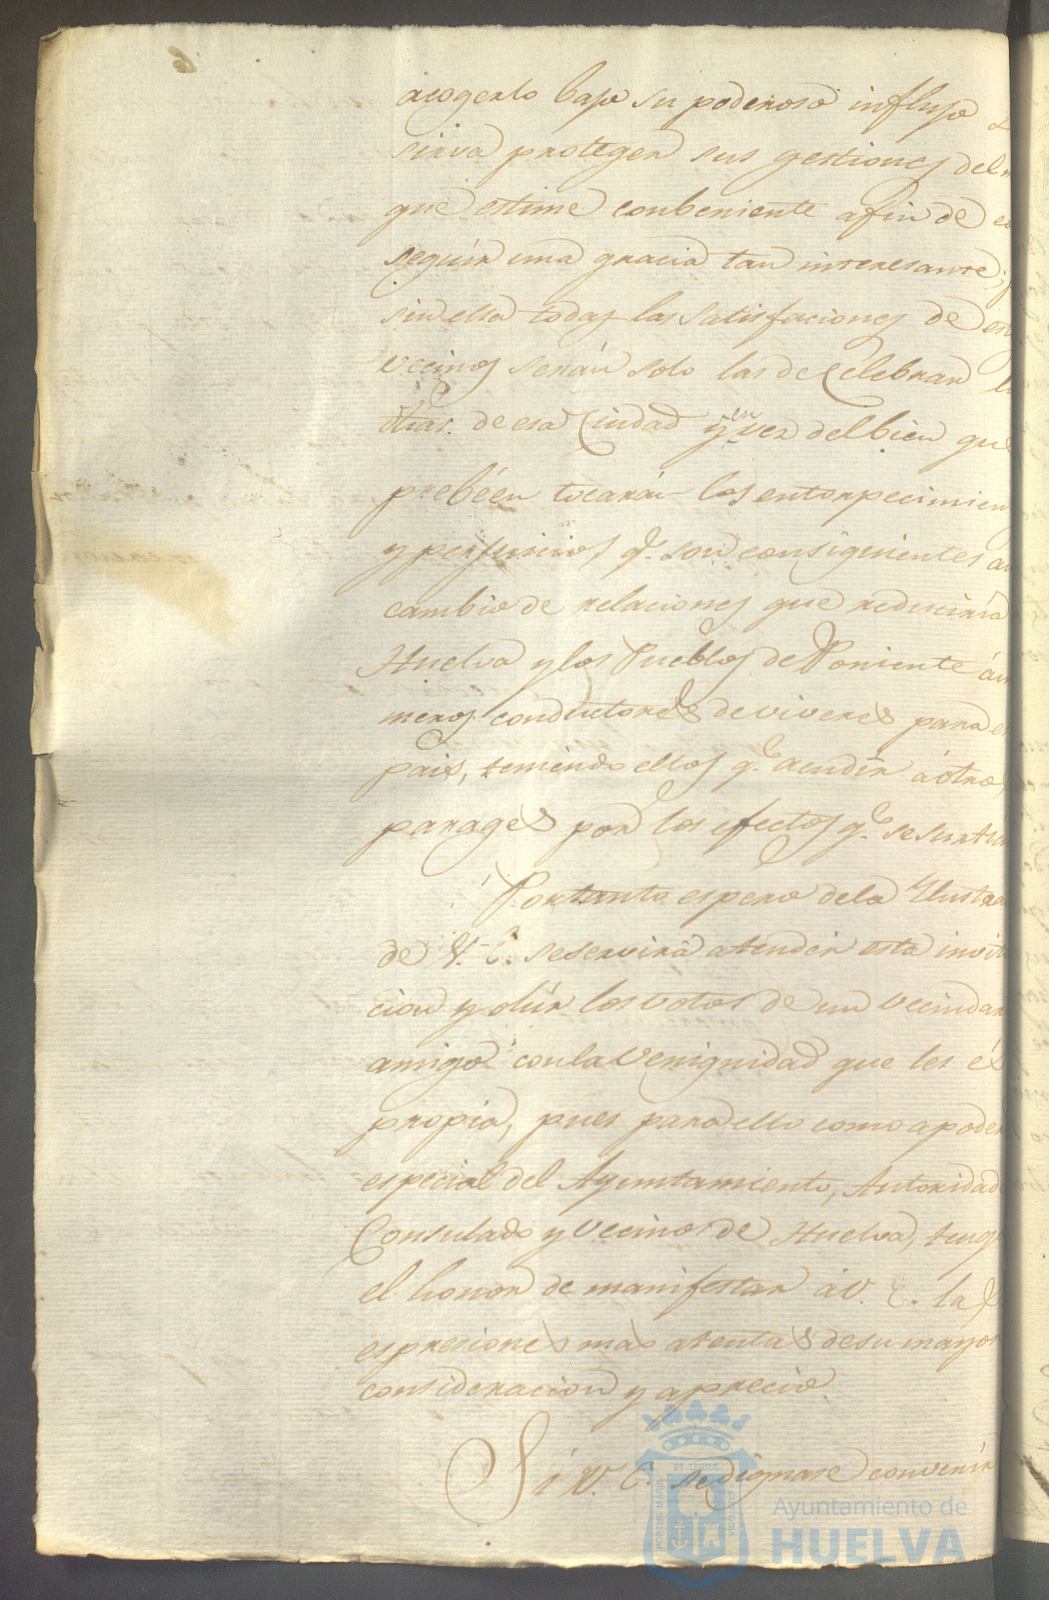 acogerlo bajo su poderoso influjo
sirva proteger sus gestiones del m
que estime conbeniente afin de co
seguir una gracia tan interesante;
sin ella todas las satisfaciones de es
vecinos serán solo las de Celebrar
de esa Ciudad y en vez del bien que
prebéen tocarán los entorpecimien
y perjuicios q.e son consiguientes a
cambio de relaciones que reduciria
Huelva y los Pueblos de Poniente á
meros conductores de viveres para
pais, teniendo ellos q.e acudir á otro
parages por los efectos q.e se surt
Portanto espero dela Ylustra
de V. E. se servirá atender esta invit
cion y oir los votos de un vecindar
amigo con la venignidad que les és
propia, pues para ello como apode
especial del Ayuntamiento, Autoridad
Consulado y vecinos de Huelva, teng
el honor de manifestar á V. E. las
espresiones mas atentas de su mayor
consideracion y aprecio.
Si V. E. se dignase convenir
PORTUS MARIS ET TERRAE CUSTODIA
Ayuntamiento de
HUELVA